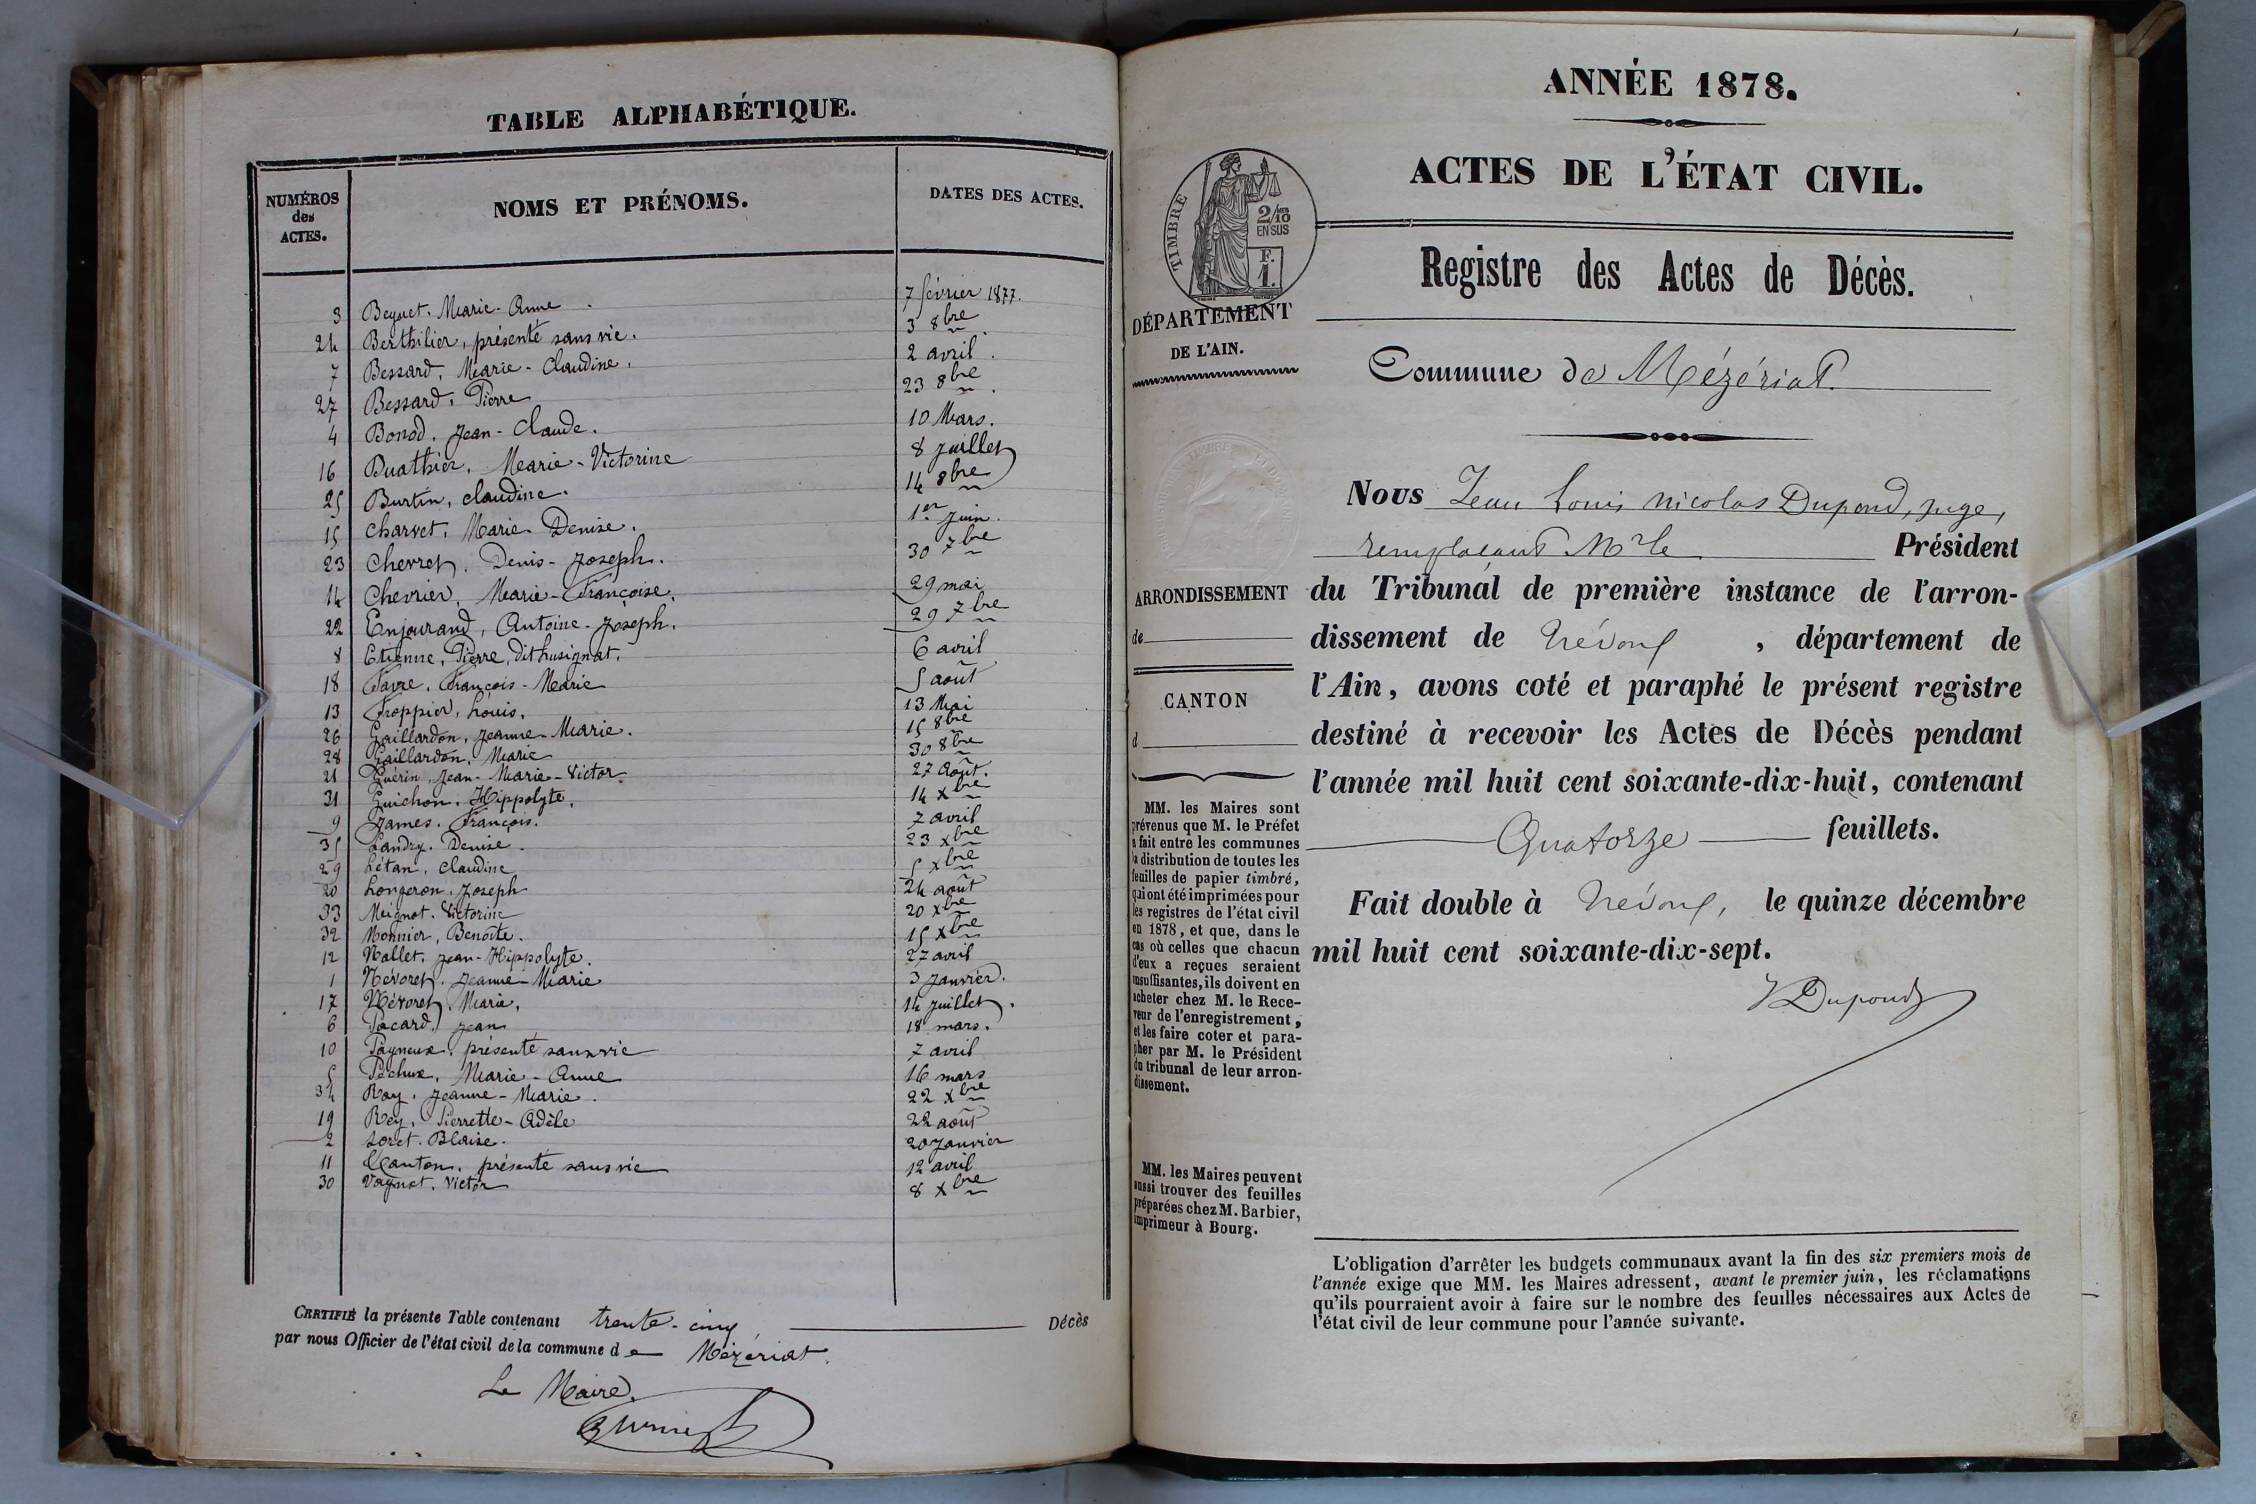 TABLE ALPHABÉTIQUE.
NUMÉROS des ACTES. NOMS ET PRÉNOMS. DATES DES ACTES.
3 Beynet. Marie-Anne 7 février 1877.
24 Berthilier, présenté sans vie. 3 8bre
7 Bessard, Marie-Claudine. 2 avril
27 Bessard, Pierre 23 8bre
4 Bonod, Jean-Claude. 10 Mars.
16 Buathier, Marie-Victorine 8 juillet
25 Burtin, claudine. 14 8bre
15 Charvet, Marie-Denise. 1er juin
23 Chevret, Denis-Joseph. 30 7bre
14 Chevrier, Marie-Françoise. 29 mai
22 Enjourand, Antoine-Joseph. 29 7bre
8 Etienne, Pierre, dit Lusignat. 6 avril
18 Favre, François-Marie 5 août
13 Froppier, Louis. 13 Mai
26 Gaillardon, Jeanne-Marie. 15 8bre
28 Gaillardon, Marie 30 8bre
21 Guérin, Jean-Marie-Victor 27 Août.
31 Guichon, Hippolyte. 14 xbre
9 James. François. 7 avril
35 Landry. Denise. 23 xbre
29 Létan, Claudine 5 xbre
20 Longeron, Joseph 24 août
33 Meignot. Victorine 20 xbre
32 Monnier, Benoîte. 15 xbre
12 Nallet, Jean-Hippolyte. 27 avril
1 Névoret, Jeanne-Marie 3 Janvier.
17 Névoret, Marie. 14 juillet.
6 Pacard, Jean 18 mars.
10 Payneux, présenté sans vie 7 avril
5 Péchux, Marie-Anne 16 mars
34 Ray, Jeanne-Marie. 22 xbre
19 Rey, Pierrette-Adèle 22 août
2 Soret. Blaise. 20 Janvier
11 Vanton, présenté sans vie 12 avril
30 Vaynat. Victor 8 xbre
CERTIFIÉ la présente Table contenant trente-cinq Décès
par nous Officier de l'état civil de la commune de Mézériat.
Le Maire.
ANNÉE 1878.
ACTES DE L'ÉTAT CIVIL.
TIMBRE
2/10 EN SUS
F. 1.
Registre des Actes de Décès.
DÉPARTEMENT
DE L'AIN.
Commune de Mézériat.
Nous Jean Louis Nicolas Dupond, juge,
remplaçant Mr le Président
du Tribunal de première instance de l'arron-
dissement de Trévoux, département de
l'Ain, avons coté et paraphé le présent registre
destiné à recevoir les Actes de Décès pendant
l'année mil huit cent soixante-dix-huit, contenant
Quatorze feuillets.
Fait double à Trévoux, le quinze décembre
mil huit cent soixante-dix-sept.
Dupond
ARRONDISSEMENT
de
CANTON
d
MM. les Maires sont
prévenus que M. le Préfet
a fait entre les communes
la distribution de toutes les
feuilles de papier timbré,
qui ont été imprimées pour
les registres de l'état civil
en 1878, et que, dans le
cas où celles que chacun
d'eux a reçues seraient
insuffisantes, ils doivent en
acheter chez M. le Rece-
veur de l'enregistrement,
et les faire coter et para-
pher par M. le Président
du tribunal de leur arron-
dissement.
MM. les Maires peuvent
aussi trouver des feuilles
préparées chez M. Barbier,
imprimeur à Bourg.
L'obligation d'arrêter les budgets communaux avant la fin des six premiers mois de
l'année exige que MM. les Maires adressent, avant le premier juin, les réclamations
qu'ils pourraient avoir à faire sur le nombre des feuilles nécessaires aux Actes de
l'état civil de leur commune pour l'année suivante.